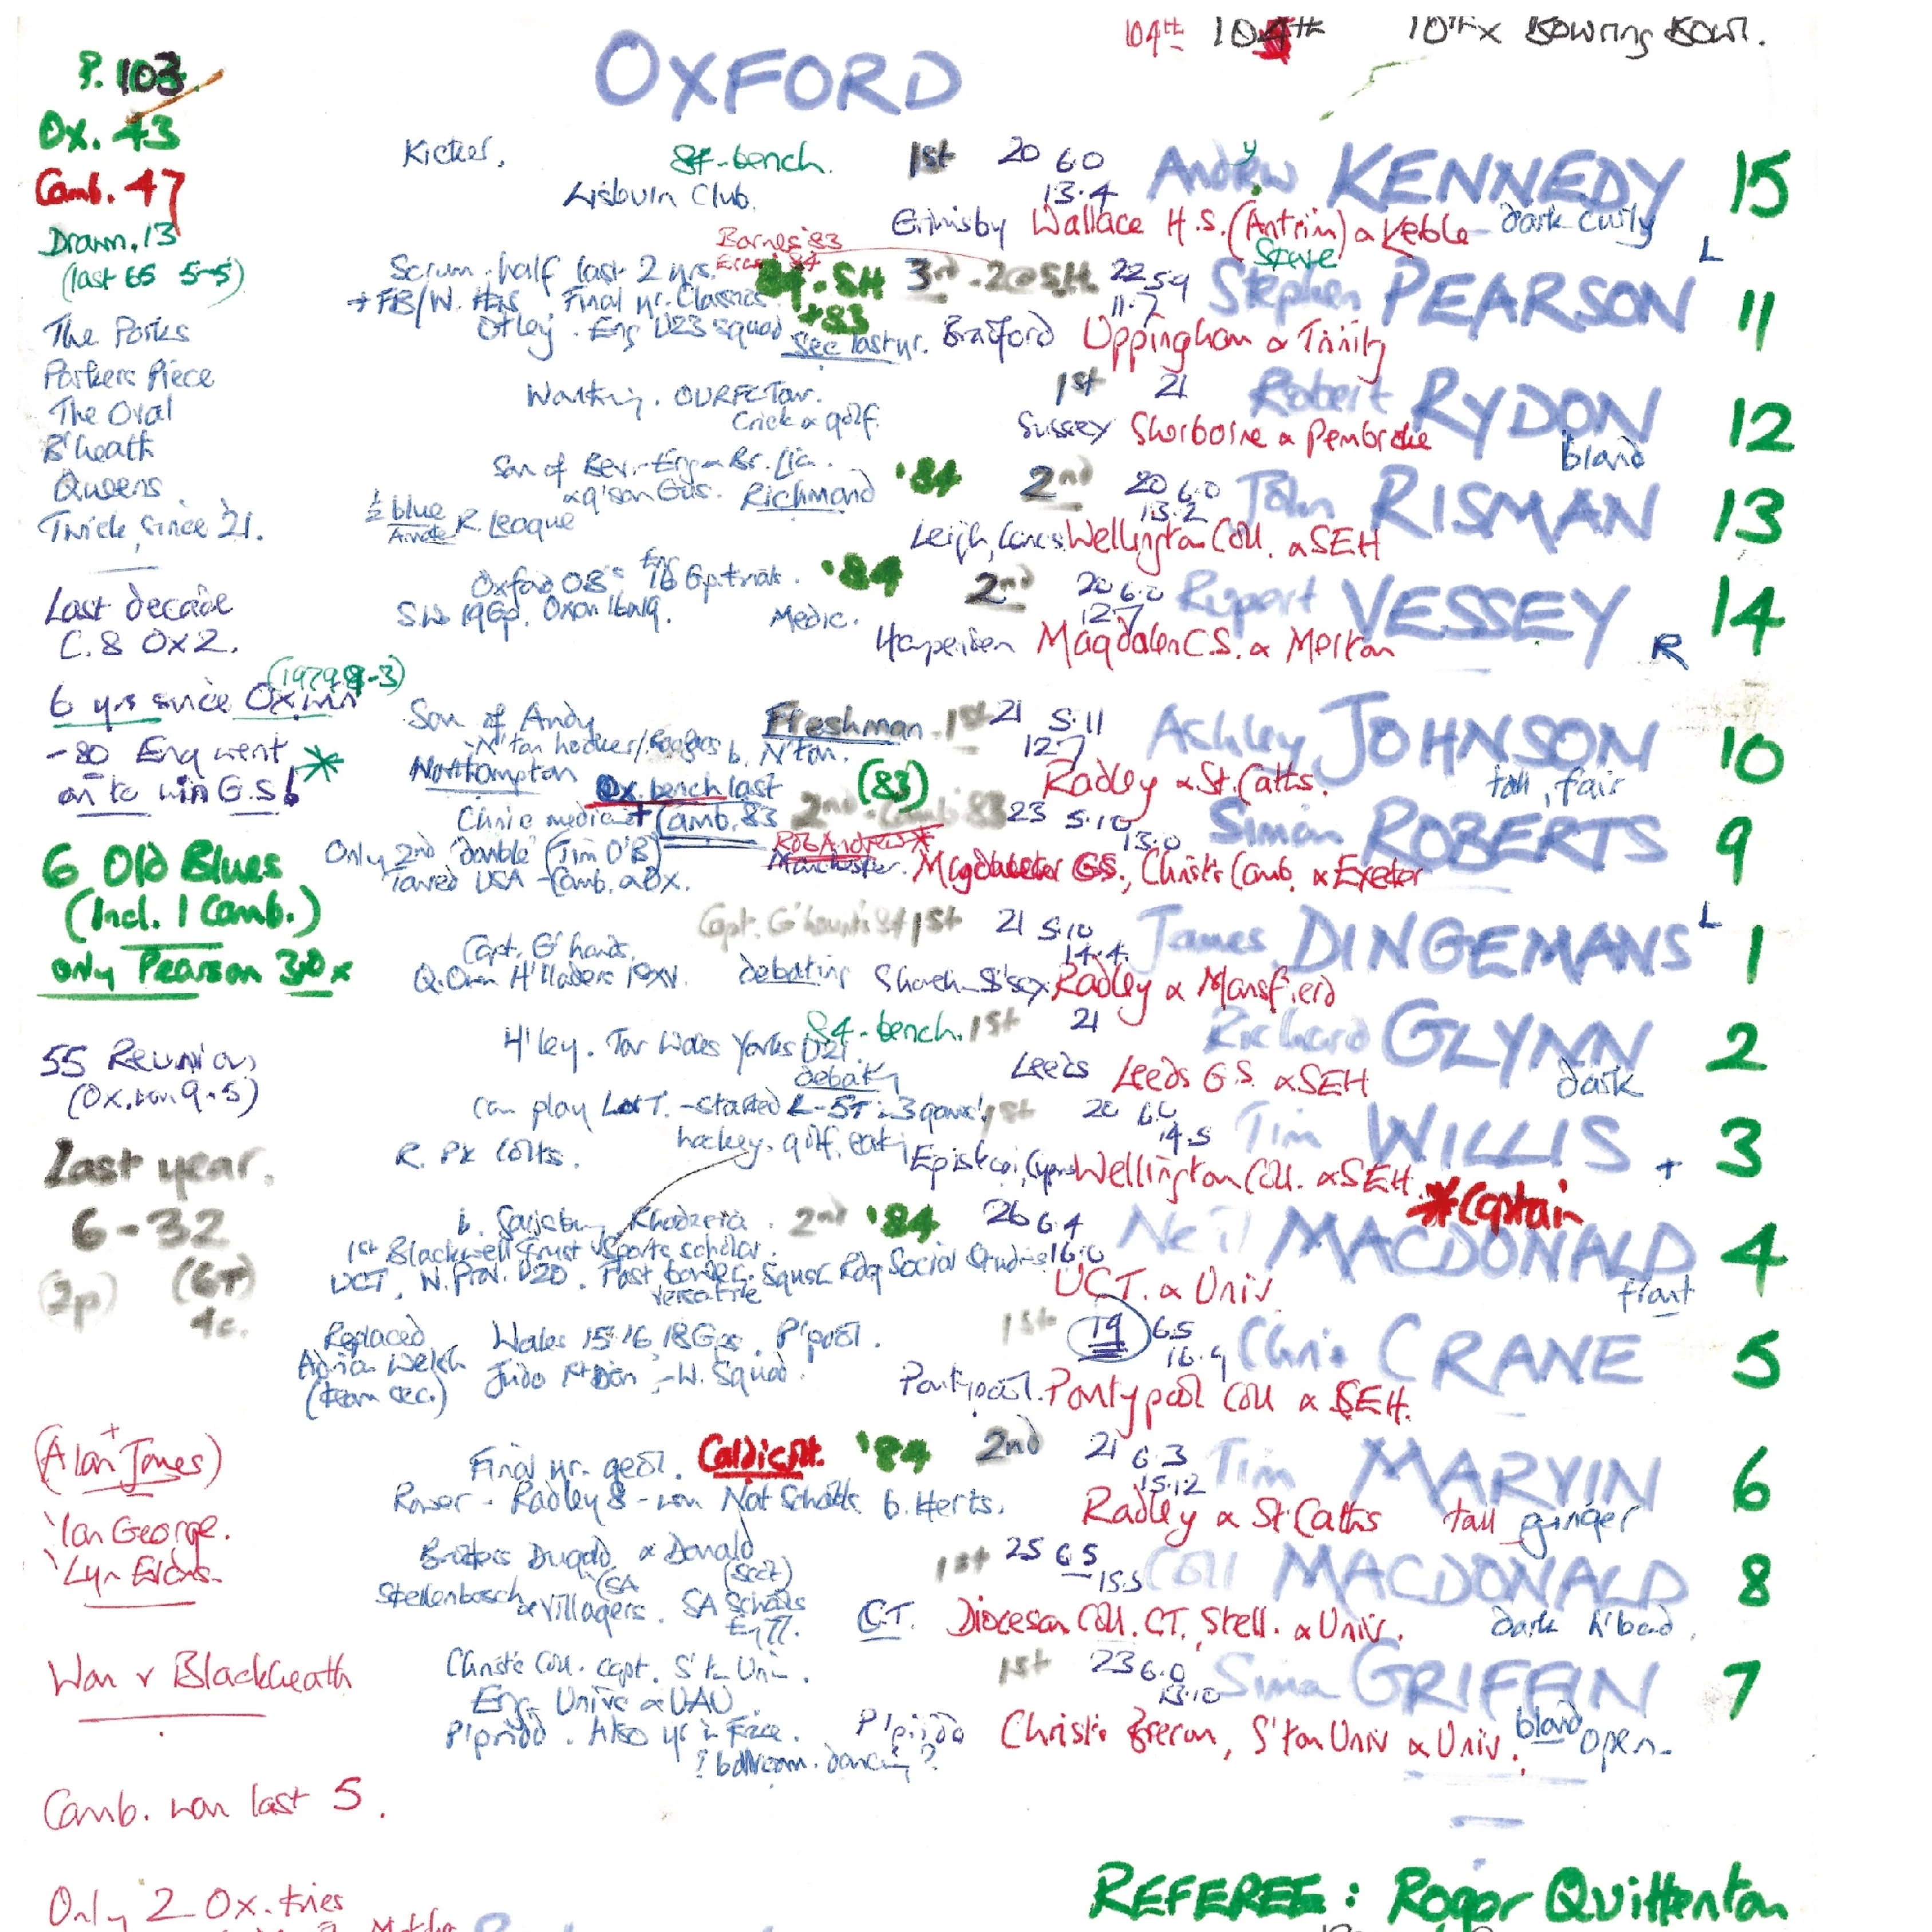 104th 104th 10th x Bowring Bowl.
OXFORD
P. 103
Ox. 43
Camb. 47
Drawn. 13
(last 65 5-5)
The Parks
Parkers Piece
The Oval
B'heath
Queens
Twick, since '21.
Last decade
C. 8 Ox 2.
6 yrs since Ox. win (1979 9-3)
-80 Eng went
on to win G.S!
6 Old Blues
(Incl. 1 Camb.)
only Pearson 3rd x
55 Reunion
(Ox. won 9-5)
Last year.
6-32
(2p) (6T)
4c.
(Alan Jones)
Ian George.
Lyn Evans.
Won v Blackheath
Camb. won last 5.
Only 2 Ox. tries
Kicker. 84-bench. 1st 20 6.0 Andrew KENNEDY 15
Lisburn Club. 13.4
Grimsby Wallace H.S. (Antrim) & Keble dark curly L
Barnes '83
Scrum-half last 2 yrs. 84. SH 3rd - 2@SH 22 5.9 Steve Stephen PEARSON 11
+ FB/W. Final yr. Classics +83 11.7
Otley. Eng U23 squad Sec last yr. Bradford Uppingham & Trinity
OURFC Tour. 1st 21 Robert RYDON 12
Crick & golf. Sussex Sherborne & Pembroke
Son of Bev. - Eng & Br. Lio. '84 2nd 20 6.0 John RISMAN 13
& g'son Gus. Richmond 13.2
½ blue R. League Leigh, Lancs Wellington Coll. & SEH
Oxford OB's Eng 16 Gp trials. '84 2nd 20 6.0 Rupert VESSEY 14
S.W. 19 Gp. Oxon 16 & 19. Medic. 12.7
Harpenden Magdalen C.S. & Merton R
Son of Andy Freshman - 1st 21 5.11 Ashley JOHNSON 10
N'ton hooker b. N'ton. 12.7
Northampton Radley & St. Caths. tall, fair
Ox. bench last (83)
Clinic medicine + Camb. 83 2nd - Camb '83 23 5.10 Simon ROBERTS 9
Only 2nd 'double' (Jim O'B) Rob Andrew* 13.0
Toured USA - Camb. & Ox. Manchester. GS., Christ's Camb. & Exeter
Capt. G'hounds 84 1st 21 5.10 James DINGEMANS L 1
Capt. G'hounds. 14.4.
Q. Own H'landers 1st XV. debating Radley & Mansfield
84-bench. 1st 21 Richard GLYNN 2
H'ley. Tour Wales Yorks U21.
debating Leeds Leeds G.S. & SEH dark
Can play L or T. - started L - 5T in 3 games! 1st 20 6.0 Tim WILLIS 3
hockey, golf, 14.5
R. Pk Colts. Episkopi, Cyprus Wellington Coll. & SEH.
*Captain
b. Salisbury Rhodesia. 2nd '84 26 6.4 Neil MACDONALD 4
1st Blackwell Trust Sports scholar. 16.0
UCT, N. Prov. U20. Past border. Squash Rdg Social Studies
versatile UCT. & Univ. front
Replaced Wales 15 16 18 Gps. P'pool. 1st 19 6.5 Chris CRANE 5
Adrian Welsh Judo 1st Dan - W. Squad. 16.9
(team sec.) Pontypool. Pontypool Coll & SEH.
Final yr. geol. Caldicott. '84 2nd 21 6.3 Tim MARVIN 6
Rower - Radley 8 - won Nat Schools. b. Herts. 15.12
Radley & St. Caths tall ginger
Brothers Dugald & Donald 1st 25 6.5 Coll MACDONALD 8
(SA) (Scot) 15.5
Stellenbosch & Villagers. SA Schools C.T. Diocesan Coll. CT, Stell. & Univ. dark h'band.
77.
Christ's Coll. capt. S'ton Univ. 1st 23 6.0 Simon GRIFFIN 7
Eng. Univs & UAU 13.10
P'pridd. Also yr in France. P'pridd Christ's Brecon, S'ton Univ & Univ. blond open.
? ballroom dancing?
REFEREE: Roger Quittenton